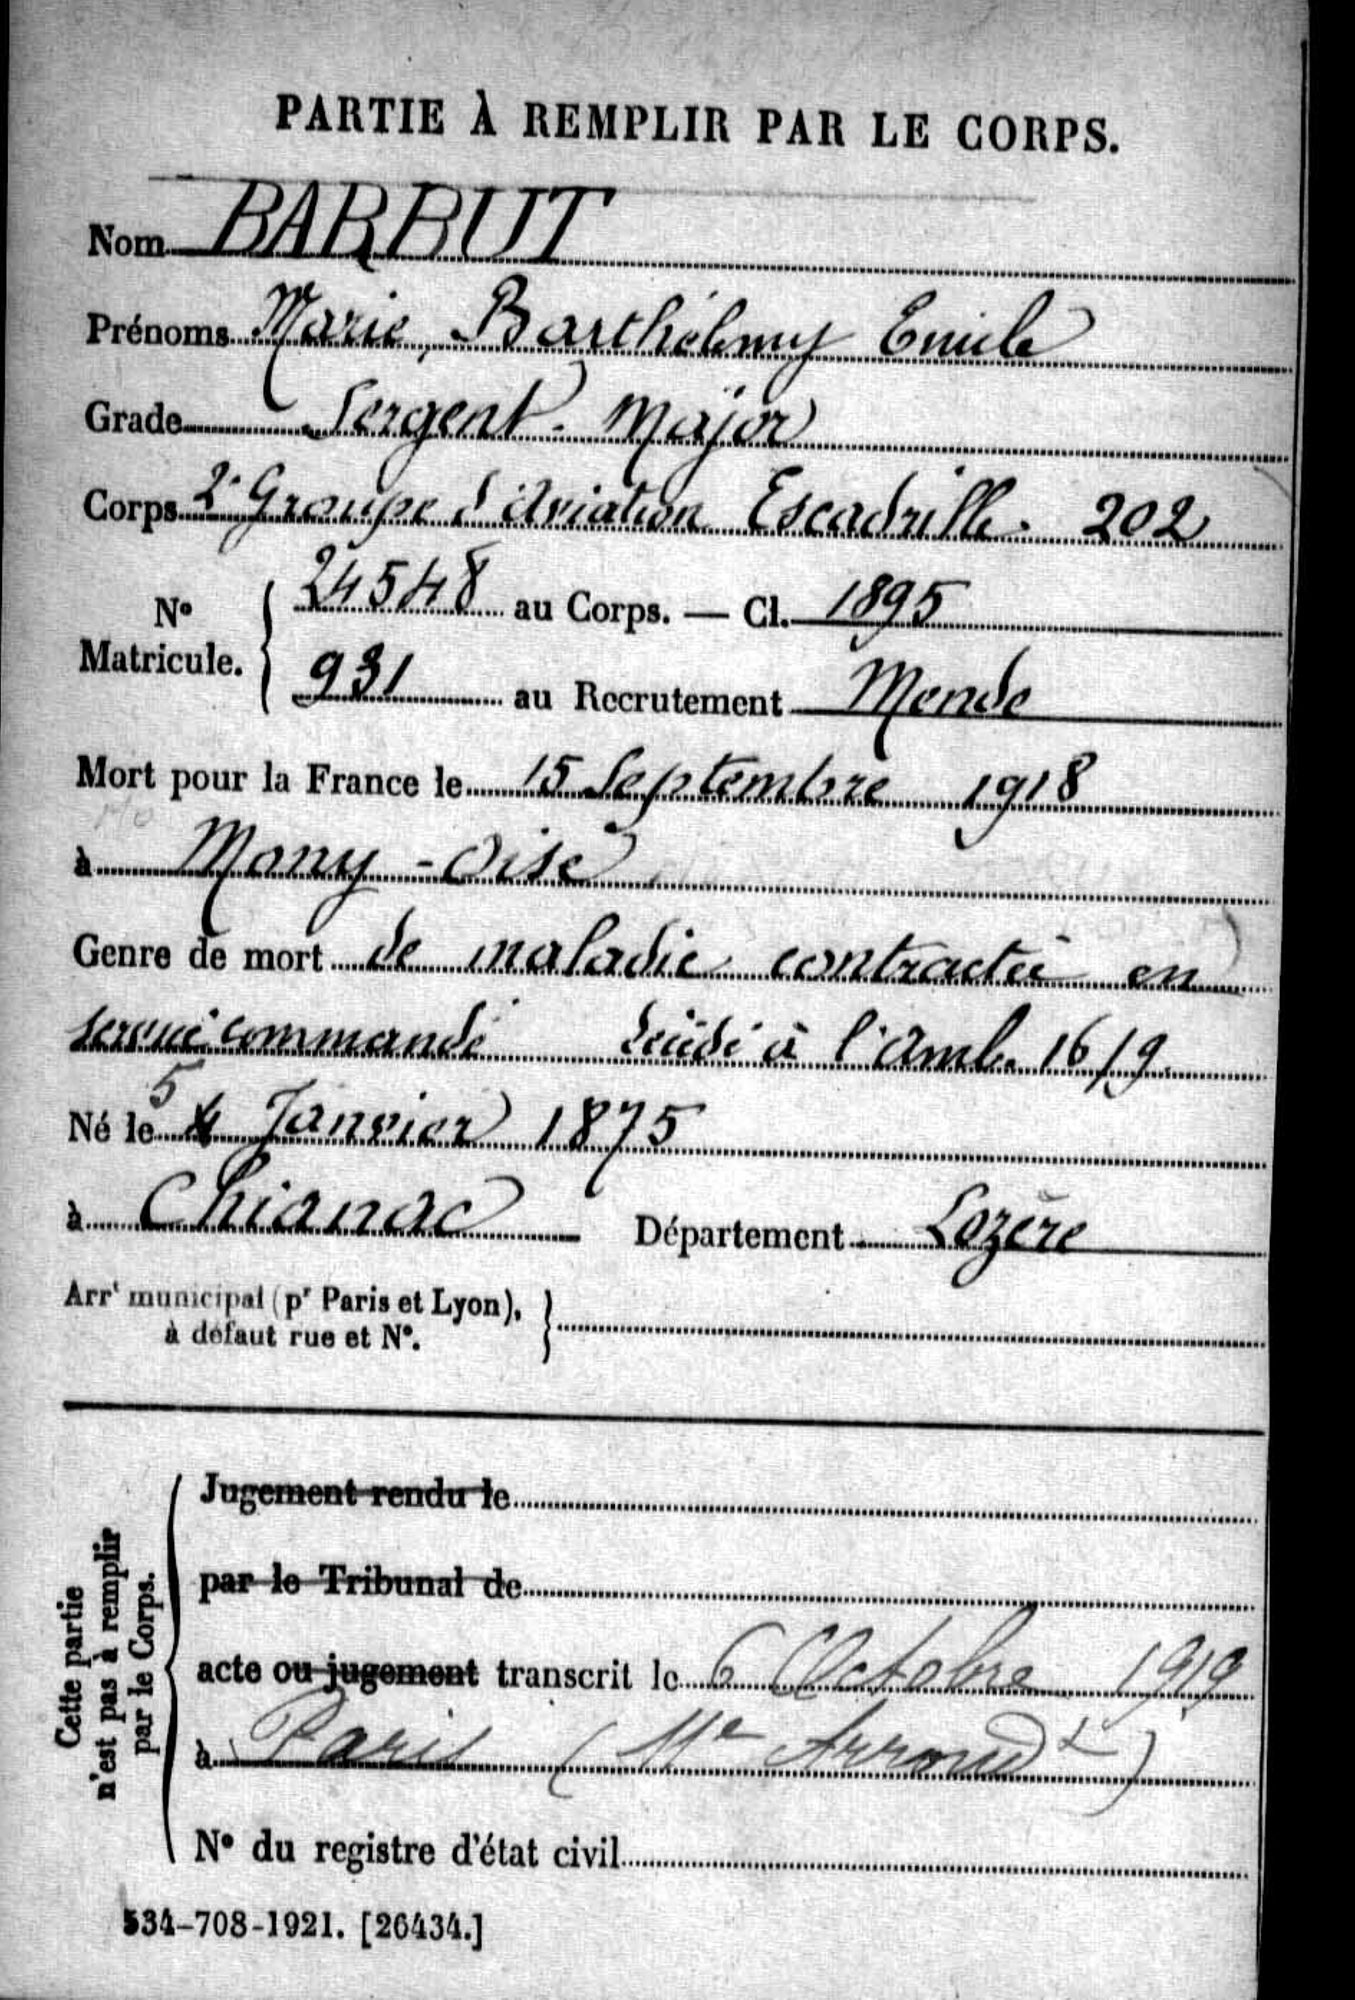 PARTIE À REMPLIR PAR LE CORPS.
Nom BARBUT
Prénoms Marie, Barthélemy Emile
Grade Sergent-Major
Corps 2e Groupe d'Aviation Escadrille 202
No Matricule. 24548 au Corps. — Cl. 1895
931 au Recrutement Mende
Mort pour la France le 15 Septembre 1918
à Mony-Oise
Genre de mort de maladie contractée en
service commandé décédé à l'Amb. 16/9.
Né le 5 4 Janvier 1875
à Chianac Département Lozère
Arrt municipal (pr Paris et Lyon),
à défaut rue et No.
Cette partie
n'est pas à remplir
par le Corps.
Jugement rendu le
par le Tribunal de
acte ou jugement transcrit le 6 Octobre 1919
à Paris (11e Arrondt)
No du registre d'état civil
534-708-1921. [26434.]